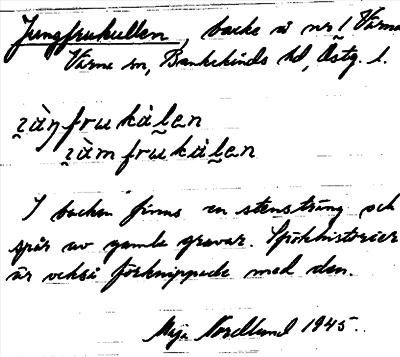 Jungfrukullen, backe i nr 1 Värna
Värna sn, Bankekinds hd, Östg. l.
i̯àŋfrukàl̥en
i̯àm frukàl̥en
I backen finns en stensträng och
spår av gamla gravar. Spökhistorier
är också förknippade med den.
Maja Nordlund 1945.